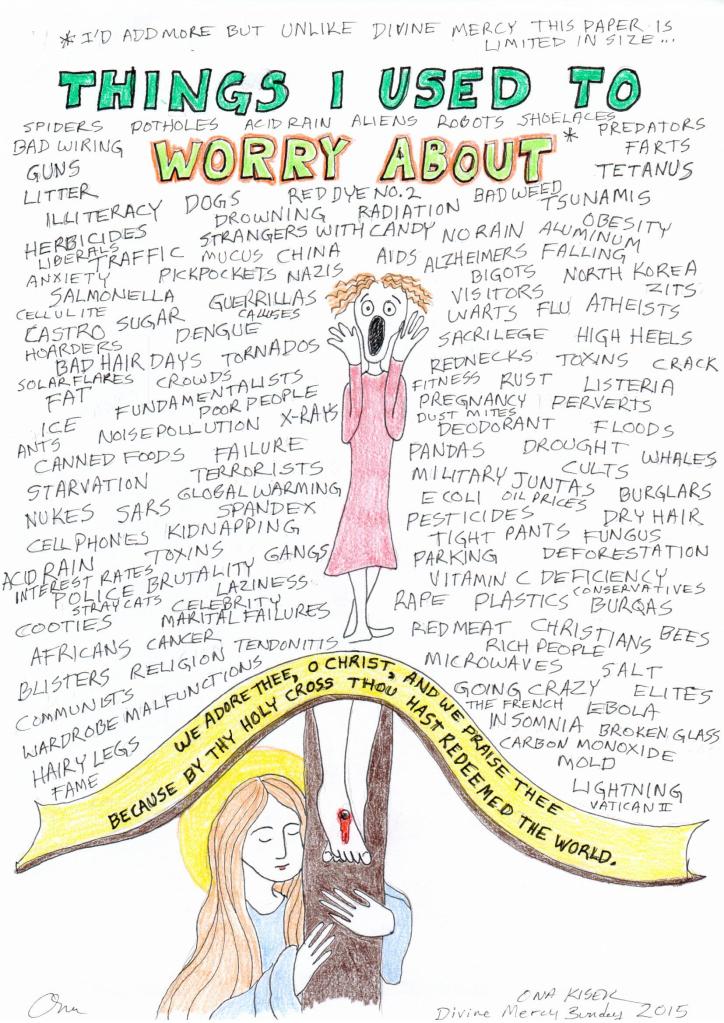 *I'D ADD MORE BUT UNLIKE DIVINE MERCY THIS PAPER IS
LIMITED IN SIZE...
THINGS I USED TO
SPIDERS POTHOLES ACID RAIN ALIENS ROBOTS SHOELACES
WORRY ABOUT *
BAD WIRING
GUNS
LITTER
PREDATORS
FARTS
TETANUS
ILLITERACY DOGS RED DYE NO. 2 BAD WEED TSUNAMIS
DROWNING RADIATION OBESITY
HERBICIDES STRANGERS WITH CANDY NO RAIN ALUMINUM
LIBERALS TRAFFIC MUCUS CHINA AIDS ALZHEIMERS FALLING
ANXIETY PICKPOCKETS NAZIS BIGOTS NORTH KOREA
SALMONELLA GUERRILLAS VISITORS ZITS
CELLULITE CALLUSES WARTS FLU ATHEISTS
CASTRO SUGAR DENGUE SACRILEGE HIGH HEELS
HOARDERS
BAD HAIR DAYS TORNADOS REDNECKS TOXINS CRACK
SOLAR FLARES CROWDS FITNESS RUST LISTERIA
FAT FUNDAMENTALISTS PREGNANCY PERVERTS
POOR PEOPLE DUST MITES
ICE NOISE POLLUTION X-RAYS DEODORANT FLOODS
ANTS
CANNED FOODS FAILURE PANDAS DROUGHT WHALES
STARVATION TERRORISTS MILITARY JUNTAS CULTS
GLOBAL WARMING E COLI OIL PRICES BURGLARS
NUKES SARS SPANDEX PESTICIDES DRY HAIR
CELL PHONES KIDNAPPING TIGHT PANTS FUNGUS
ACID RAIN TOXINS GANGS PARKING DEFORESTATION
INTEREST RATES VITAMIN C DEFICIENCY
POLICE BRUTALITY LAZINESS CONSERVATIVES
STRAY CATS CELEBRITY RAPE PLASTICS BURQAS
COOTIES MARITAL FAILURES RED MEAT CHRISTIANS BEES
AFRICANS CANCER TENDONITIS RICH PEOPLE
BLISTERS RELIGION MICROWAVES SALT
COMMUNISTS GOING CRAZY ELITES
WARDROBE MALFUNCTIONS THE FRENCH EBOLA
INSOMNIA BROKEN GLASS
HAIRY LEGS CARBON MONOXIDE
FAME MOLD
LIGHTNING
VATICAN II
WE ADORE THEE, O CHRIST, AND WE PRAISE THEE
BECAUSE BY THY HOLY CROSS THOU HAST REDEEMED THE WORLD.
Ona
ONA KISER
Divine Mercy Sunday 2015